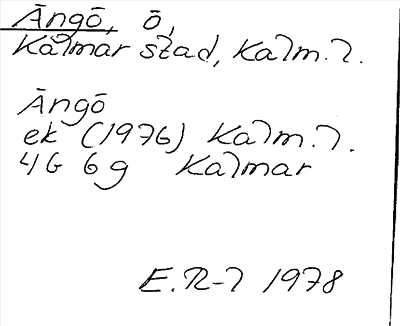 Ängö, ö,
Kalmar stad, Kalm. l.
Ängö
ek (1976) Kalm. l.
4G 6g Kalmar
E. R-l 1978